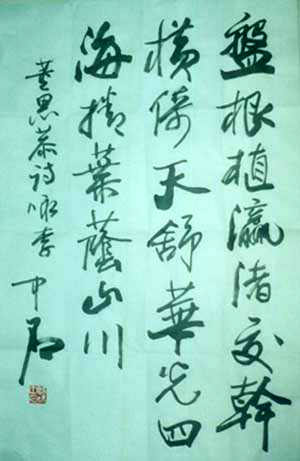 盤根植瀛渚交幹
横倚天舒華光四
海捲葉蔭山川
董思恭詩咏李 中